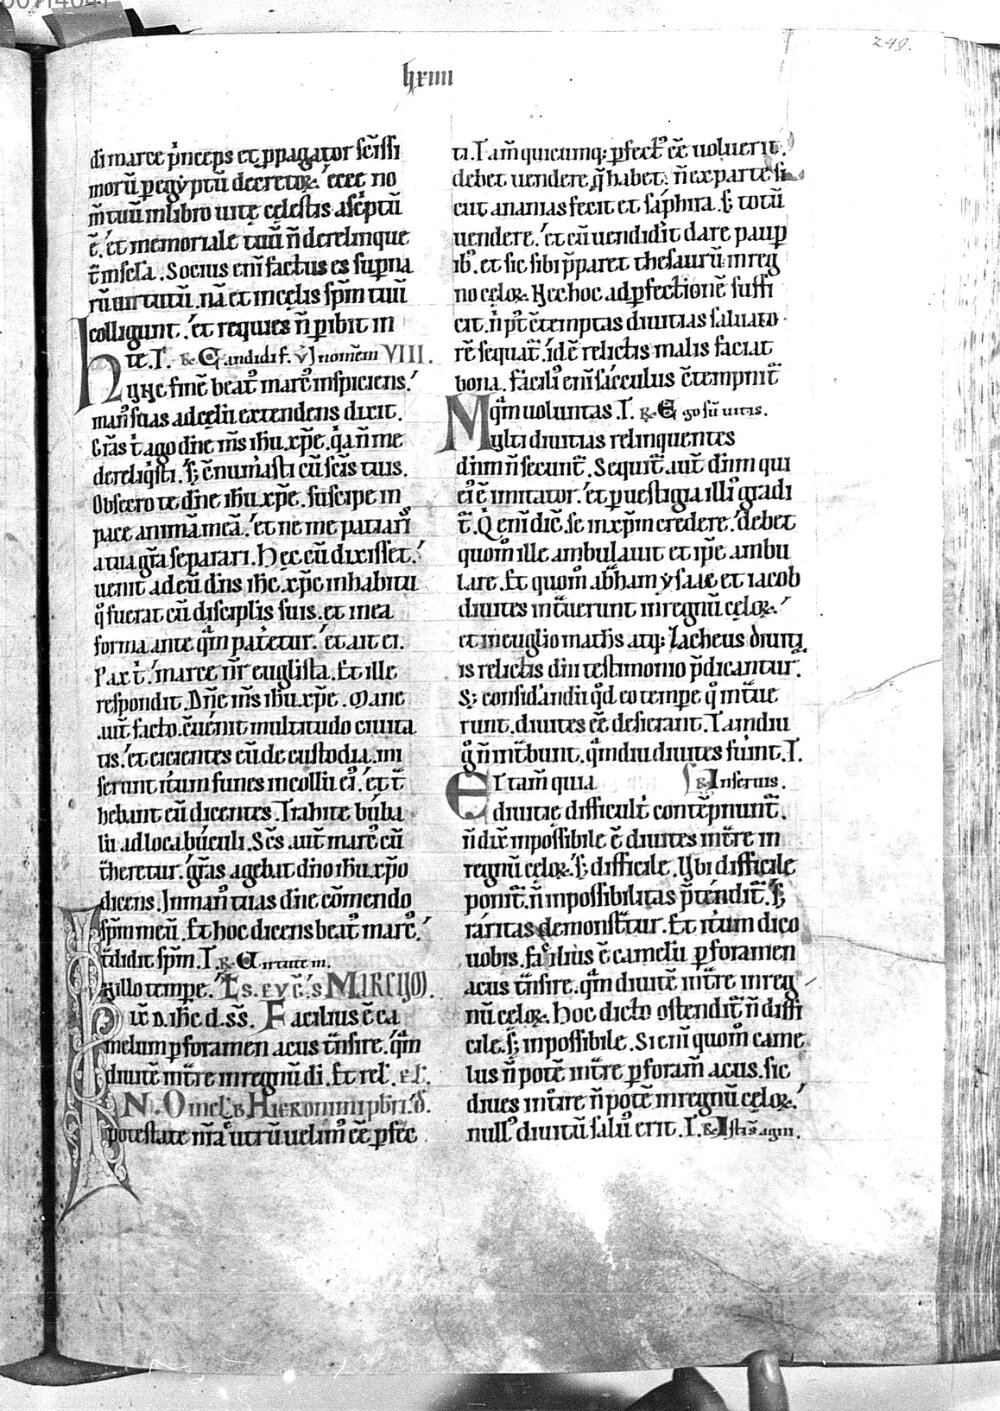 249.
lxiiii
di marce p̾nceps et ꝓpagator sc̄issi
morū ꝑ egẏptū decretoꝝ. ecce no
m̄ tuū in libro uitę cęlestis asc̾ptū
ē. et memoriale tuū n̄ derelinque
t̄ in sc̄la. Socius eni᷑ factus es suꝑna
rū uirtutū. nā et in cęlis sp̄m tuū
colligunt. et requies n̄ ꝑibit in
te. I. ℞ Candidi f. v̾ J nomēm VIII.
Hunc finē beat᷒ marc᷒ inspiciens.
man᷒ suas ad cęlū extendens dixit.
Gr̄as t̾ ago dn̄e m̄s ih̄u xp̄e. q̾a n̄ me
dereliq̾sti. s; ēnum̾asti cū sc̄is tuis.
Obsecro te dn̄e ih̄u xp̄e. suscipe in
pace animā meā. et ne me patiar̾
a tua gr̄a separari. Hęc cū dixisset.
uenit ad eū dn̄s ih̄c xp̄c in habitu
q̊ fuerat cū discipl̄is suis. et in ea
forma ante q̾m pat̾etur. et ait ei.
Pax t̾. marce nr̄ eug̾lista. Et ille
respondit. Dn̄e m̄s ih̄u xp̄e. Mane
aut̄ facto. c̄uenit multitudo ciuita
tis. et eicientes eū de custodia. mi
serunt it̾um funes in collū ei᷒. et t̾
hebant eū dicentes. Trahite búba
lū ad loca búculi. Sc̄s aut̄ marc᷒ cū
t̾heretur. gr̄as agebat dn̄o ih̄u xp̄o
dicens. In man᷒ tuas dn̄e cōmendo
sp̄m meū. Et hoc dicens beat᷒ marc᷒.
t̾didit sp̄m. I. ℞ Cirtutem.
In illo tempe. L̄s. evc̄. s MARCUM.
Dix̄ d. ih̄c d. ss̄. Facilius ē ca
melum ꝑ foramen acus t̾nsire. q̾m
diuitē int̾re in regnū di. Et rel̄. el̄.
N. Omel̄. B. Hieronimi pbr̄i. d̄.
potestate nr̄a utrū uelim᷒ ēē ꝑfec
ti. Tam̄ quicumq; ꝑfect᷒ ēē uoluerit.
debet uendere q̾ habet. n̄ ex parte si
cut ananias fecit et saphira. s; totū
uendere. et cū uendidit dare pauꝑ
ib᷒. et sic sibi p̄paret thesaurū in reg
no cęloꝝ. Nec hoc ad ꝑfectionē suffi
cit. n̄ pt᷒ c̄temptas diuitias saluato
rē sequat̾. id ē relictis malis faciat
bona. facili᷒ eni᷑ sácculus c̄tempnit̾
q̾m uoluntas. I. ℞ Ego sū uitis.
Multi diuitias relinquentes
dn̄m n̄ secunt̾. Sequit̾ aut̄ dn̄m qui
ei᷒ ē imitator. et ꝑ uestigia illi᷒ gradi
t̾. Q̾ eni᷑ dic̄ se in xp̄m credere. debet
quom᷒ ille ambulauit et ip̄e ambu
lare. Et quom᷒ abh̄am ẏsaac et iacob
diuites int̾uerunt in regnū cęloꝝ.
et in euuglio math̄s atq; Zacheus diuiti
is relictis dn̄i testimonio p̄dicantur.
S; considāndū q̾d eo tempe q̊ int̾ue
runt. diuites ēē desierant. Tamdiu
g̾ n̄ int̾bunt. q̾mdiu diuites fu̾int. I.
Et tam̄ quia ℞ Inserius.
diuitię difficult̾ contēpnunt̾.
n̄ dix̄ inpossibile ē diuites int̾re in
regnū cęloꝝ. s; difficile. Ubi difficile
ponit̾. n̄ inpossibilitas p̄téndit̾. s;
ráritas demonst̾tur. Et it̾um dico
uobis. facilius ē camelū ꝑ foramen
acus t̾nsire. q̾m diuitē int̾re in reg
nū cęloꝝ. Hoc dicto ostendit̾ n̄ diffi
cile. s; inpossibile. Si eni᷑ quom᷒ came
lus n̄ potē int̾re ꝑ foram̄ acus. sic
diues int̾ire n̄ potē in regnū cęloꝝ.
null᷒ diuitū salu᷒ erit. I. ℞ Isti s̄ agni.